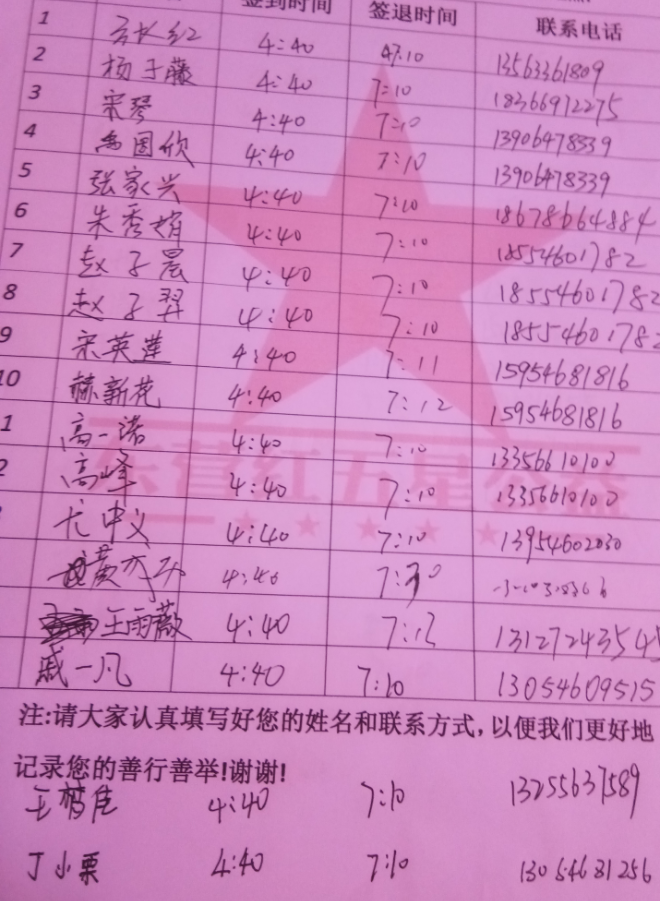 签到时间 签退时间 联系电话
1 4:40 47:10 13563361809
2 杨子藤 4:40 7:10 18366972275
3 宋琴 4:40 7:10 13906478339
4 国欣 4:40 7:10 13906478339
5 张家兴 4:40 7:10 18678664884
6 朱秀娟 4:40 7:10 18554601782
7 赵子晨 4:40 7:10 18554601782
8 赵子羿 4:40 7:10 18554601782
9 宋英莲 4:40 7:11 15954681816
10 赫新花 4:40 7:12 15954681816
1 高一诺 4:40 7:10 13356610100
2 高峰 4:40 7:10 13356610100
尤中义 4:40 7:10 13954602030
黄 4:40 7:30
王雨薇 4:40 7:12 1312724354
戚一凡 4:40 7:10 13054609515
东营红五星公益
注:请大家认真填写好您的姓名和联系方式,以便我们更好地
记录您的善行善举!谢谢!
王 佳 4:40 7:10 13255637589
丁小栗 4:40 7:10 13054681256